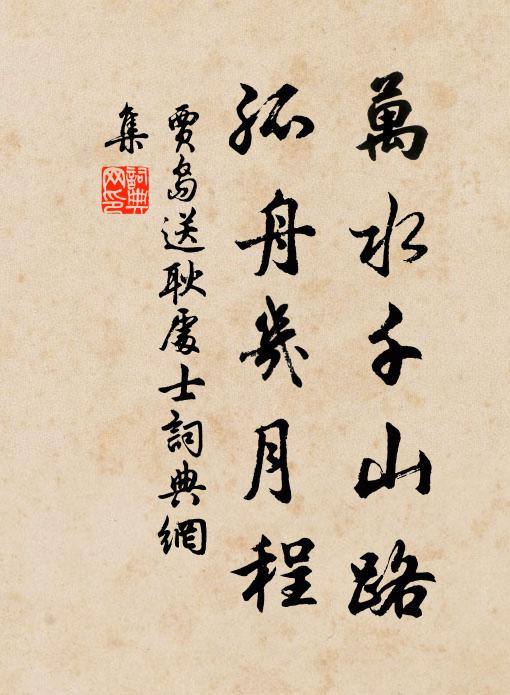 萬水千山路
孤舟幾月程
賈島送耿處士詞典網
集
詞典
网印